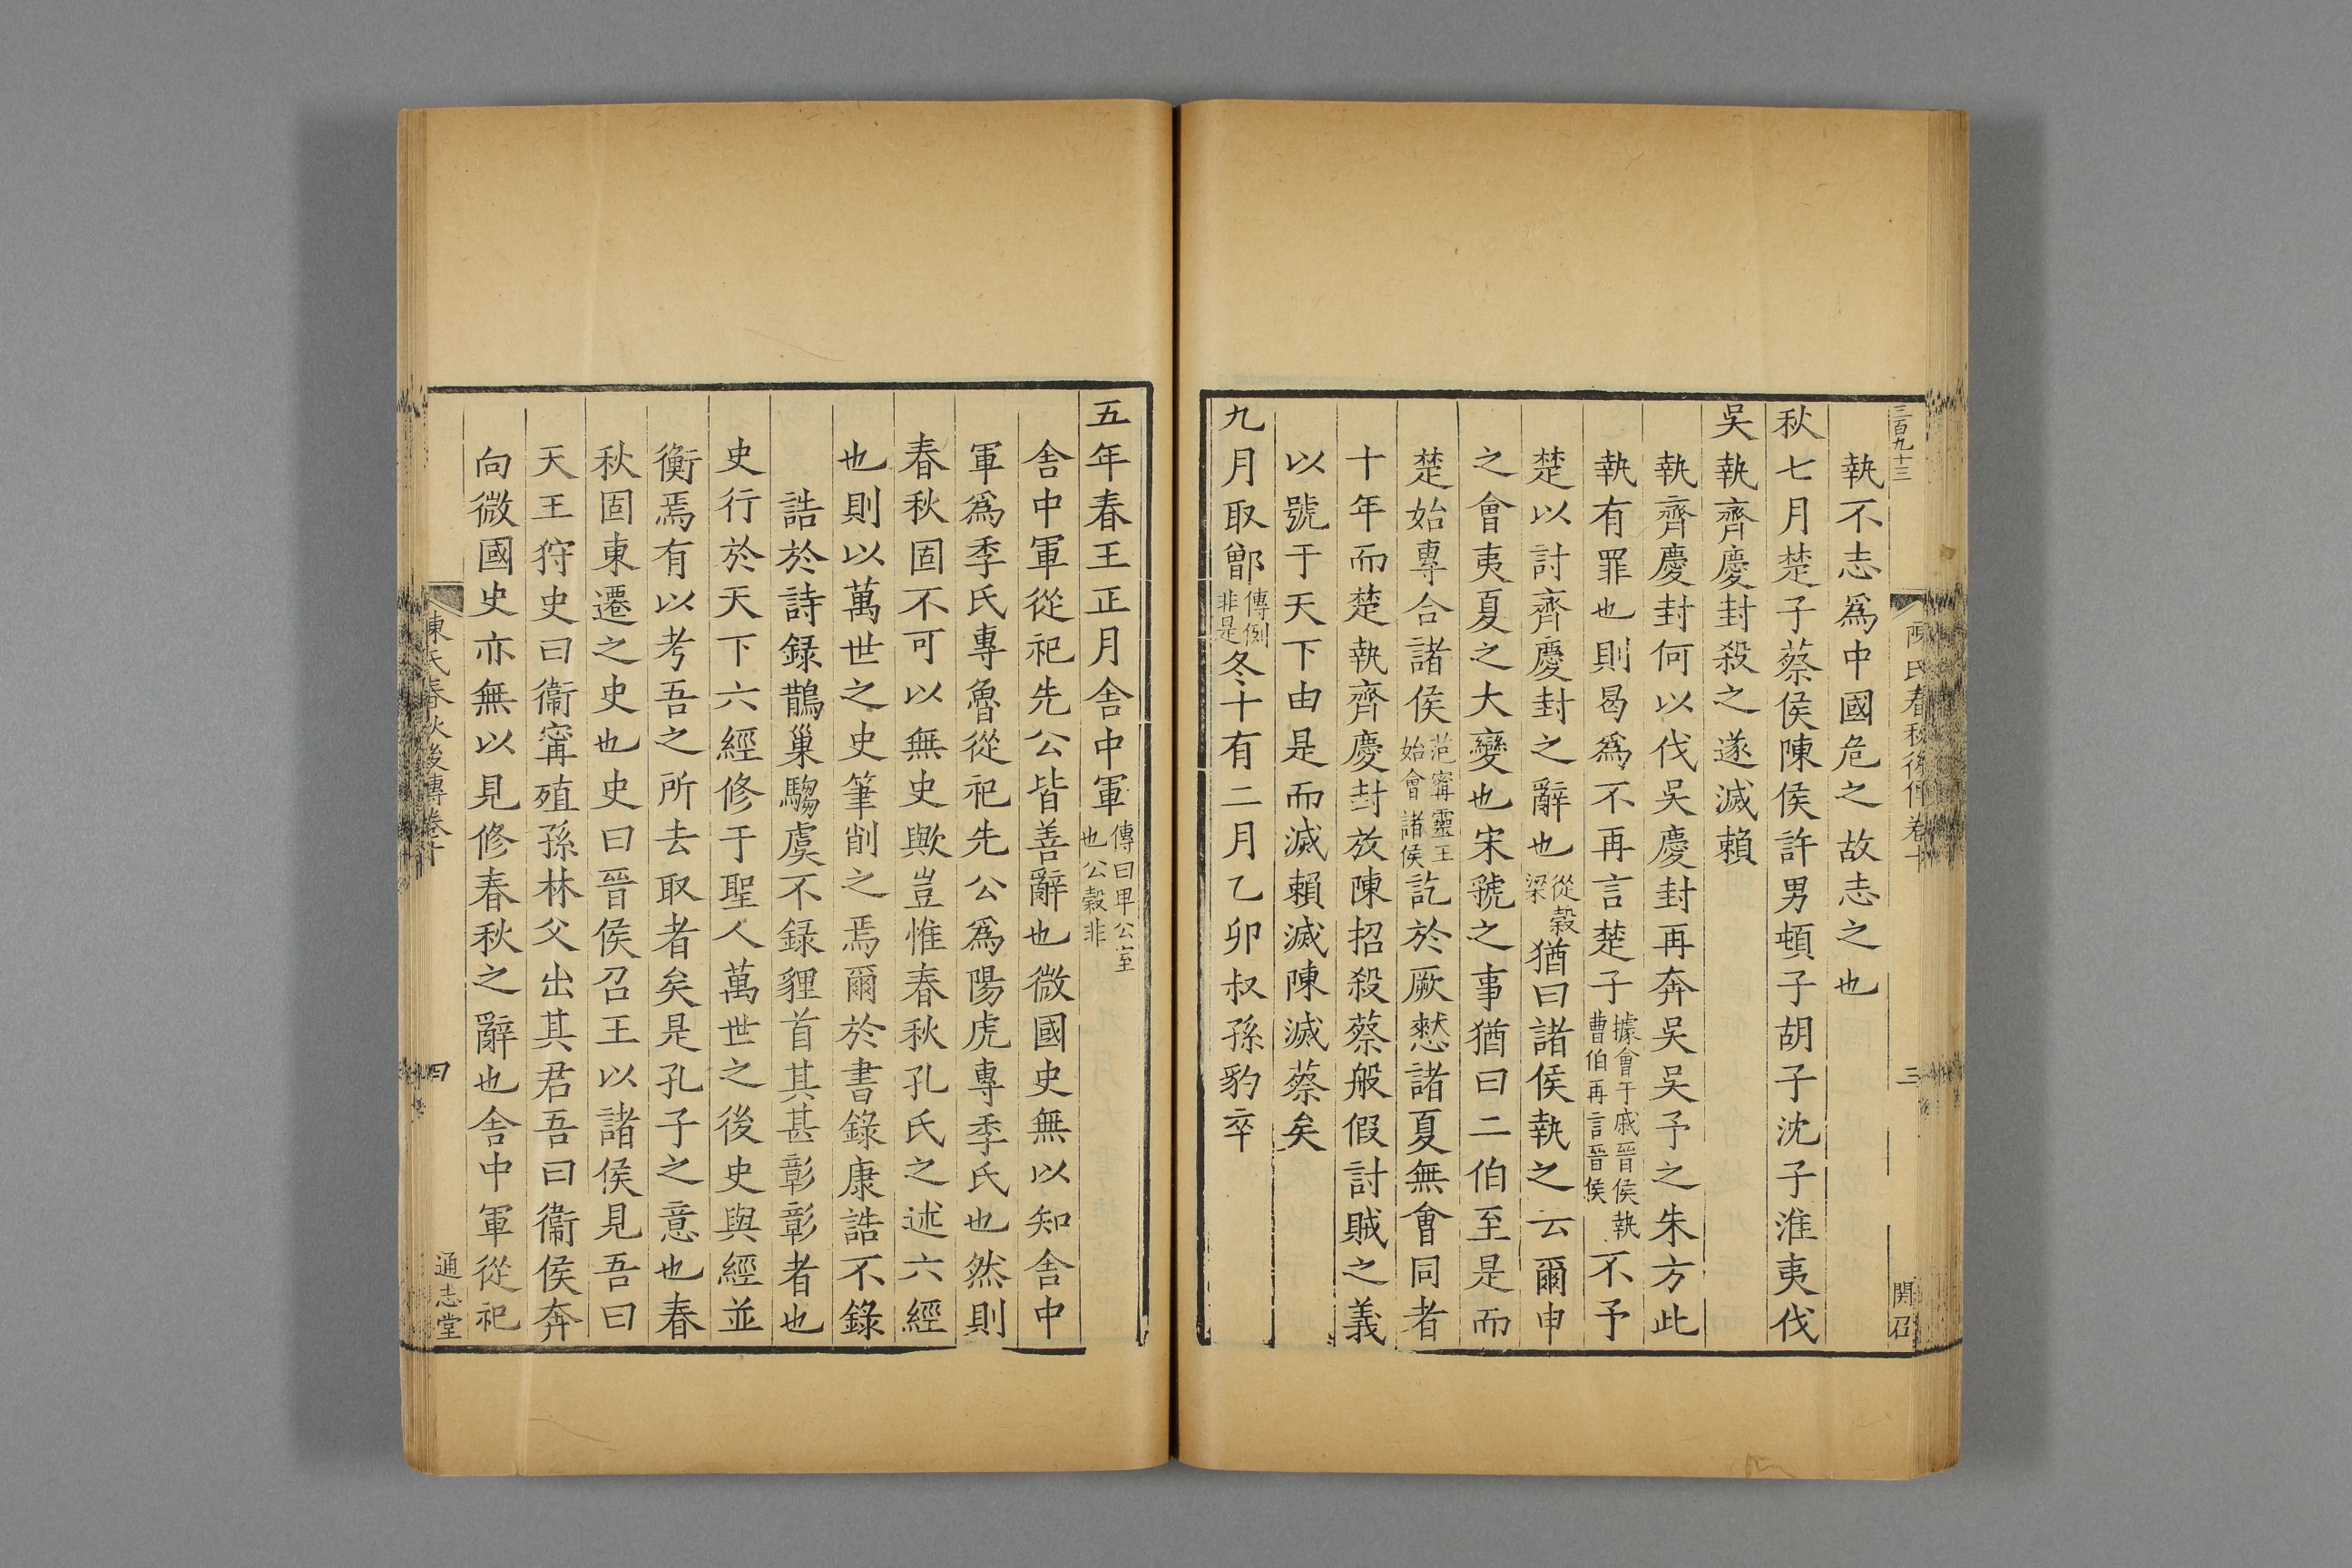 三百九十三
陳氏春秋後傳卷十
三
関召
執不志爲中國危之故志之也
秋七月楚子蔡侯陳侯許男頓子胡子沈子淮夷伐
吳執齊慶封殺之遂滅賴
執齊慶封何以伐吳慶封再奔吳吳予之朱方此
執有罪也則曷爲不再言楚子據會于戚晉侯執曹伯再言晉侯不予
楚以討齊慶封之辭也從穀梁猶曰諸侯執之云爾申
之會夷夏之大變也宋虢之事猶曰二伯至是而
楚始專合諸侯范甯靈王始會諸侯訖於厥憖諸夏無會同者
十年而楚執齊慶封放陳招殺蔡般假討賊之義
以號于天下由是而滅賴滅陳滅蔡矣
九月取鄫傳例非是冬十有二月乙卯叔孫豹卒
五年春王正月舎中軍傳曰卑公室也公穀非
舎中軍從祀先公皆善辭也微國史無以知舎中
軍爲季氏專魯從祀先公爲陽虎專季氏也然則
春秋固不可以無史歟豈惟春秋孔氏之述六經
也則以萬世之史筆削之焉爾於書錄康誥不錄
誥於詩録鵲巢騶虞不録貍首其甚彰彰者也
史行於天下六經修于聖人萬世之後史與經並
衡焉有以考吾之所去取者矣是孔子之意也春
秋固東遷之史也史曰晉侯召王以諸侯見吾曰
天王狩史曰衞甯殖孫林父出其君吾曰衞侯奔
向微國史亦無以見修春秋之辭也舎中軍從祀
陳氏春秋後傳卷十
四
通志堂